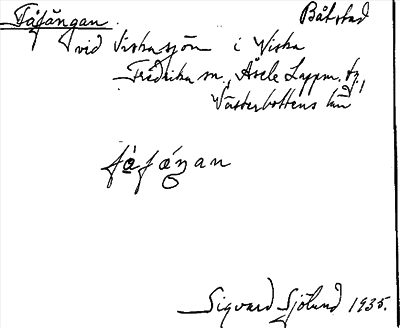 Fåfångan. Båtstad
vid Viskasjön i Viska
Fredrika sn, Åsele Lappm. tg,
Västerbottens län
fåfáŋan
Sigvard Sjölund 1935.